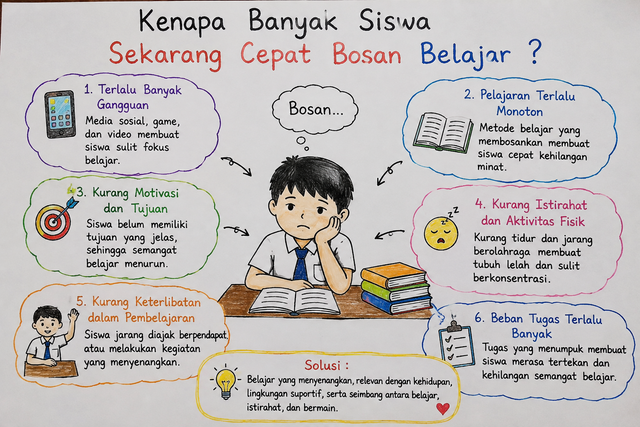 Kenapa Banyak Siswa
Sekarang Cepat Bosan Belajar ?
1. Terlalu Banyak
Gangguan
Media sosial, game,
dan video membuat
siswa sulit fokus
belajar.
Bosan...
2. Pelajaran Terlalu
Monoton
Metode belajar yang
membosankan membuat
siswa cepat kehilangan
minat.
3. Kurang Motivasi
dan Tujuan
Siswa belum memiliki
tujuan yang jelas,
sehingga semangat
belajar menurun.
4. Kurang Istirahat
dan Aktivitas Fisik
Kurang tidur dan jarang
berolahraga membuat
tubuh lelah dan sulit
berkonsentrasi.
zzz
5. Kurang Keterlibatan
dalam Pembelajaran
Siswa jarang diajak berpendapat
atau melakukan kegiatan
yang menyenangkan.
6. Beban Tugas Terlalu
Banyak
Tugas yang menumpuk membuat
siswa merasa tertekan dan
kehilangan semangat belajar.
Solusi :
Belajar yang menyenangkan, relevan dengan kehidupan,
lingkungan suportif, serta seimbang antara belajar,
istirahat, dan bermain.